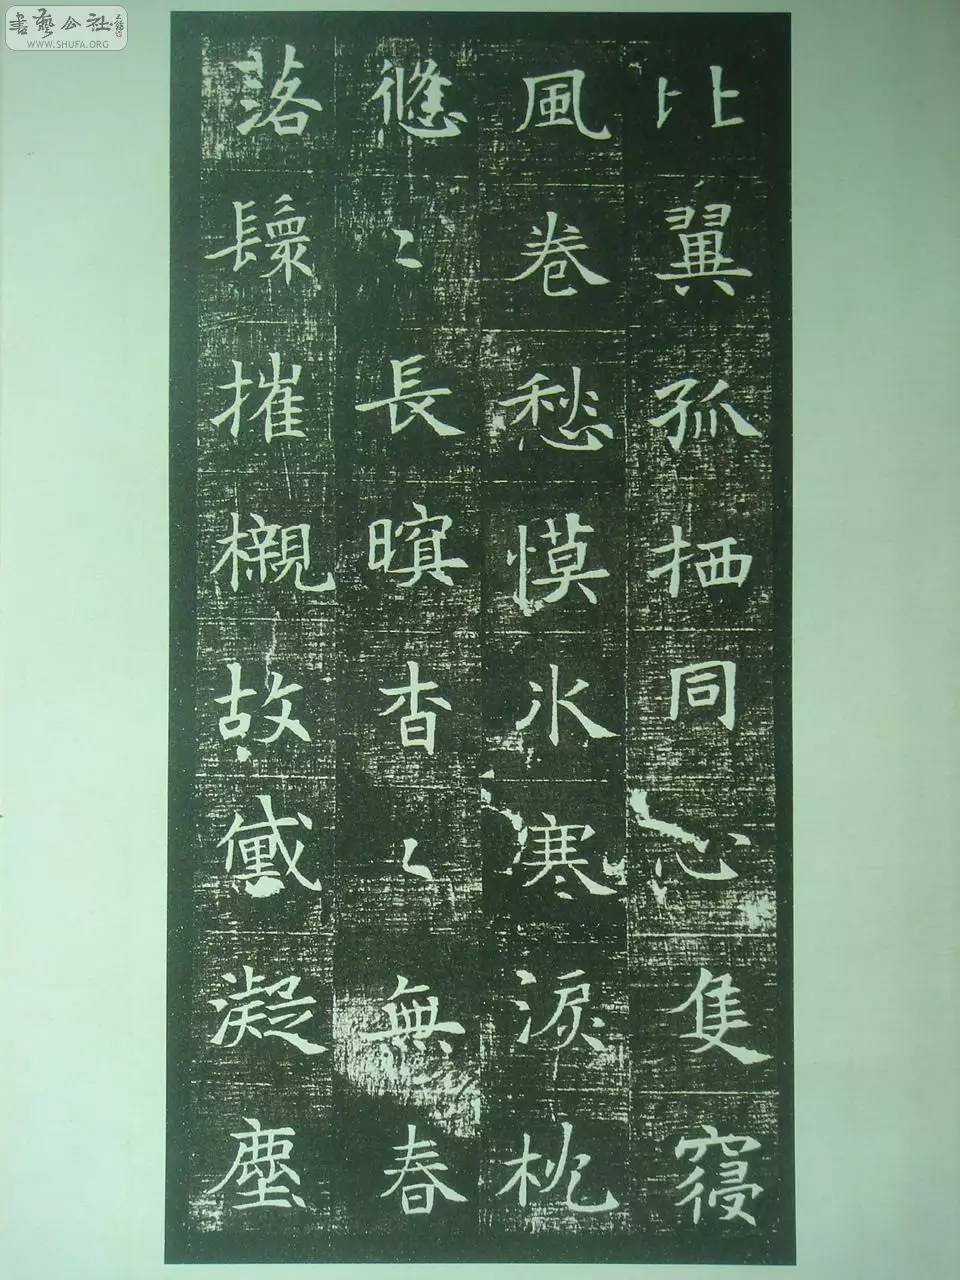 書藝公社
WWW.SHUFA.ORG
比翼孤栖同心隻寢
風卷愁慔氷寒淚枕
悠〻長暝杳〻無春
落鬟摧櫬故黛凝塵